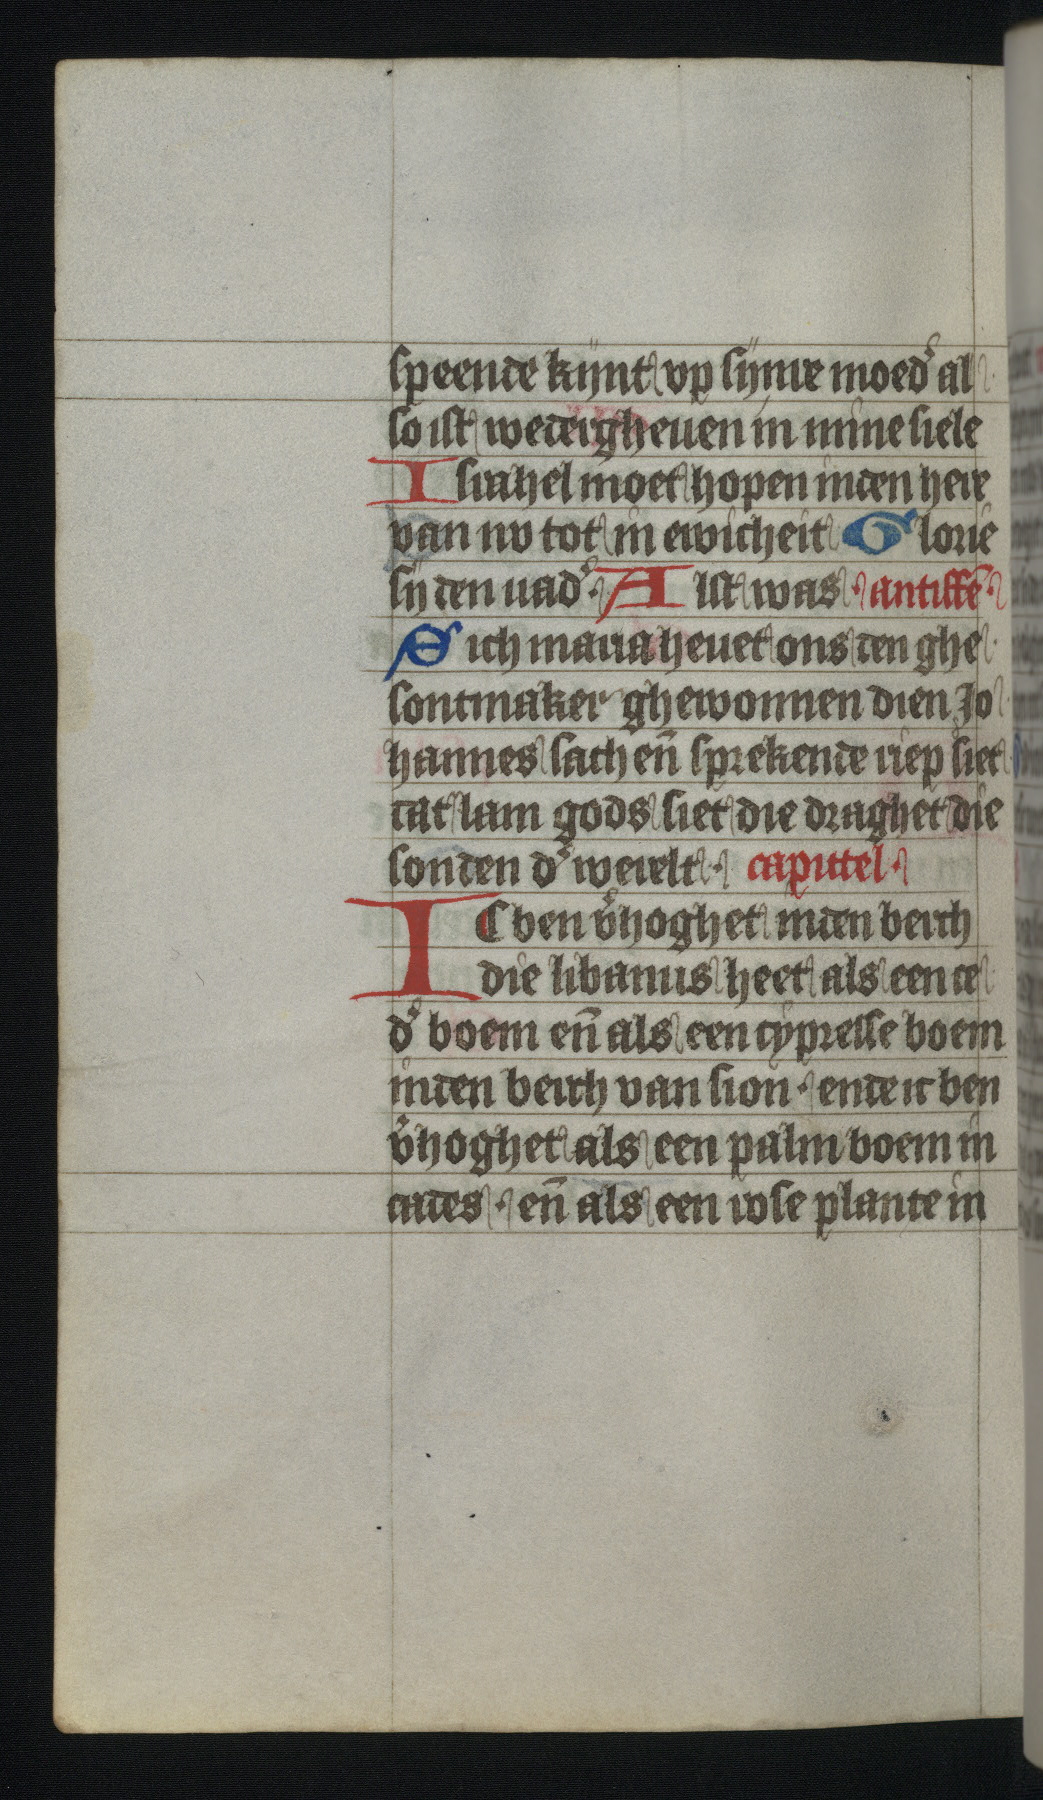 speende kijnt vp sijnre moed̉ al
so ist wedergheuen in mine siele
Israhel moet hopen inden here
van nv tot in ewicheit Glorie
sij den uad̉ · Alst was · antiffē ·
Sich maria heuet ons den ghe
sontmaker ghewonnen dien Jo
hannes sach en̄ sprekende riep siet
dat lam gods siet die draghet die
sonden d̉ werelt · capittel ·
IC ben v̉hoghet inden berch
die libanus heet als een ce
d̉ boem en̄ als een cypresse boem
inden berch van sion · ende ic ben
v̉hoghet als een palm boem in
cades · en̄ als een rose plante in